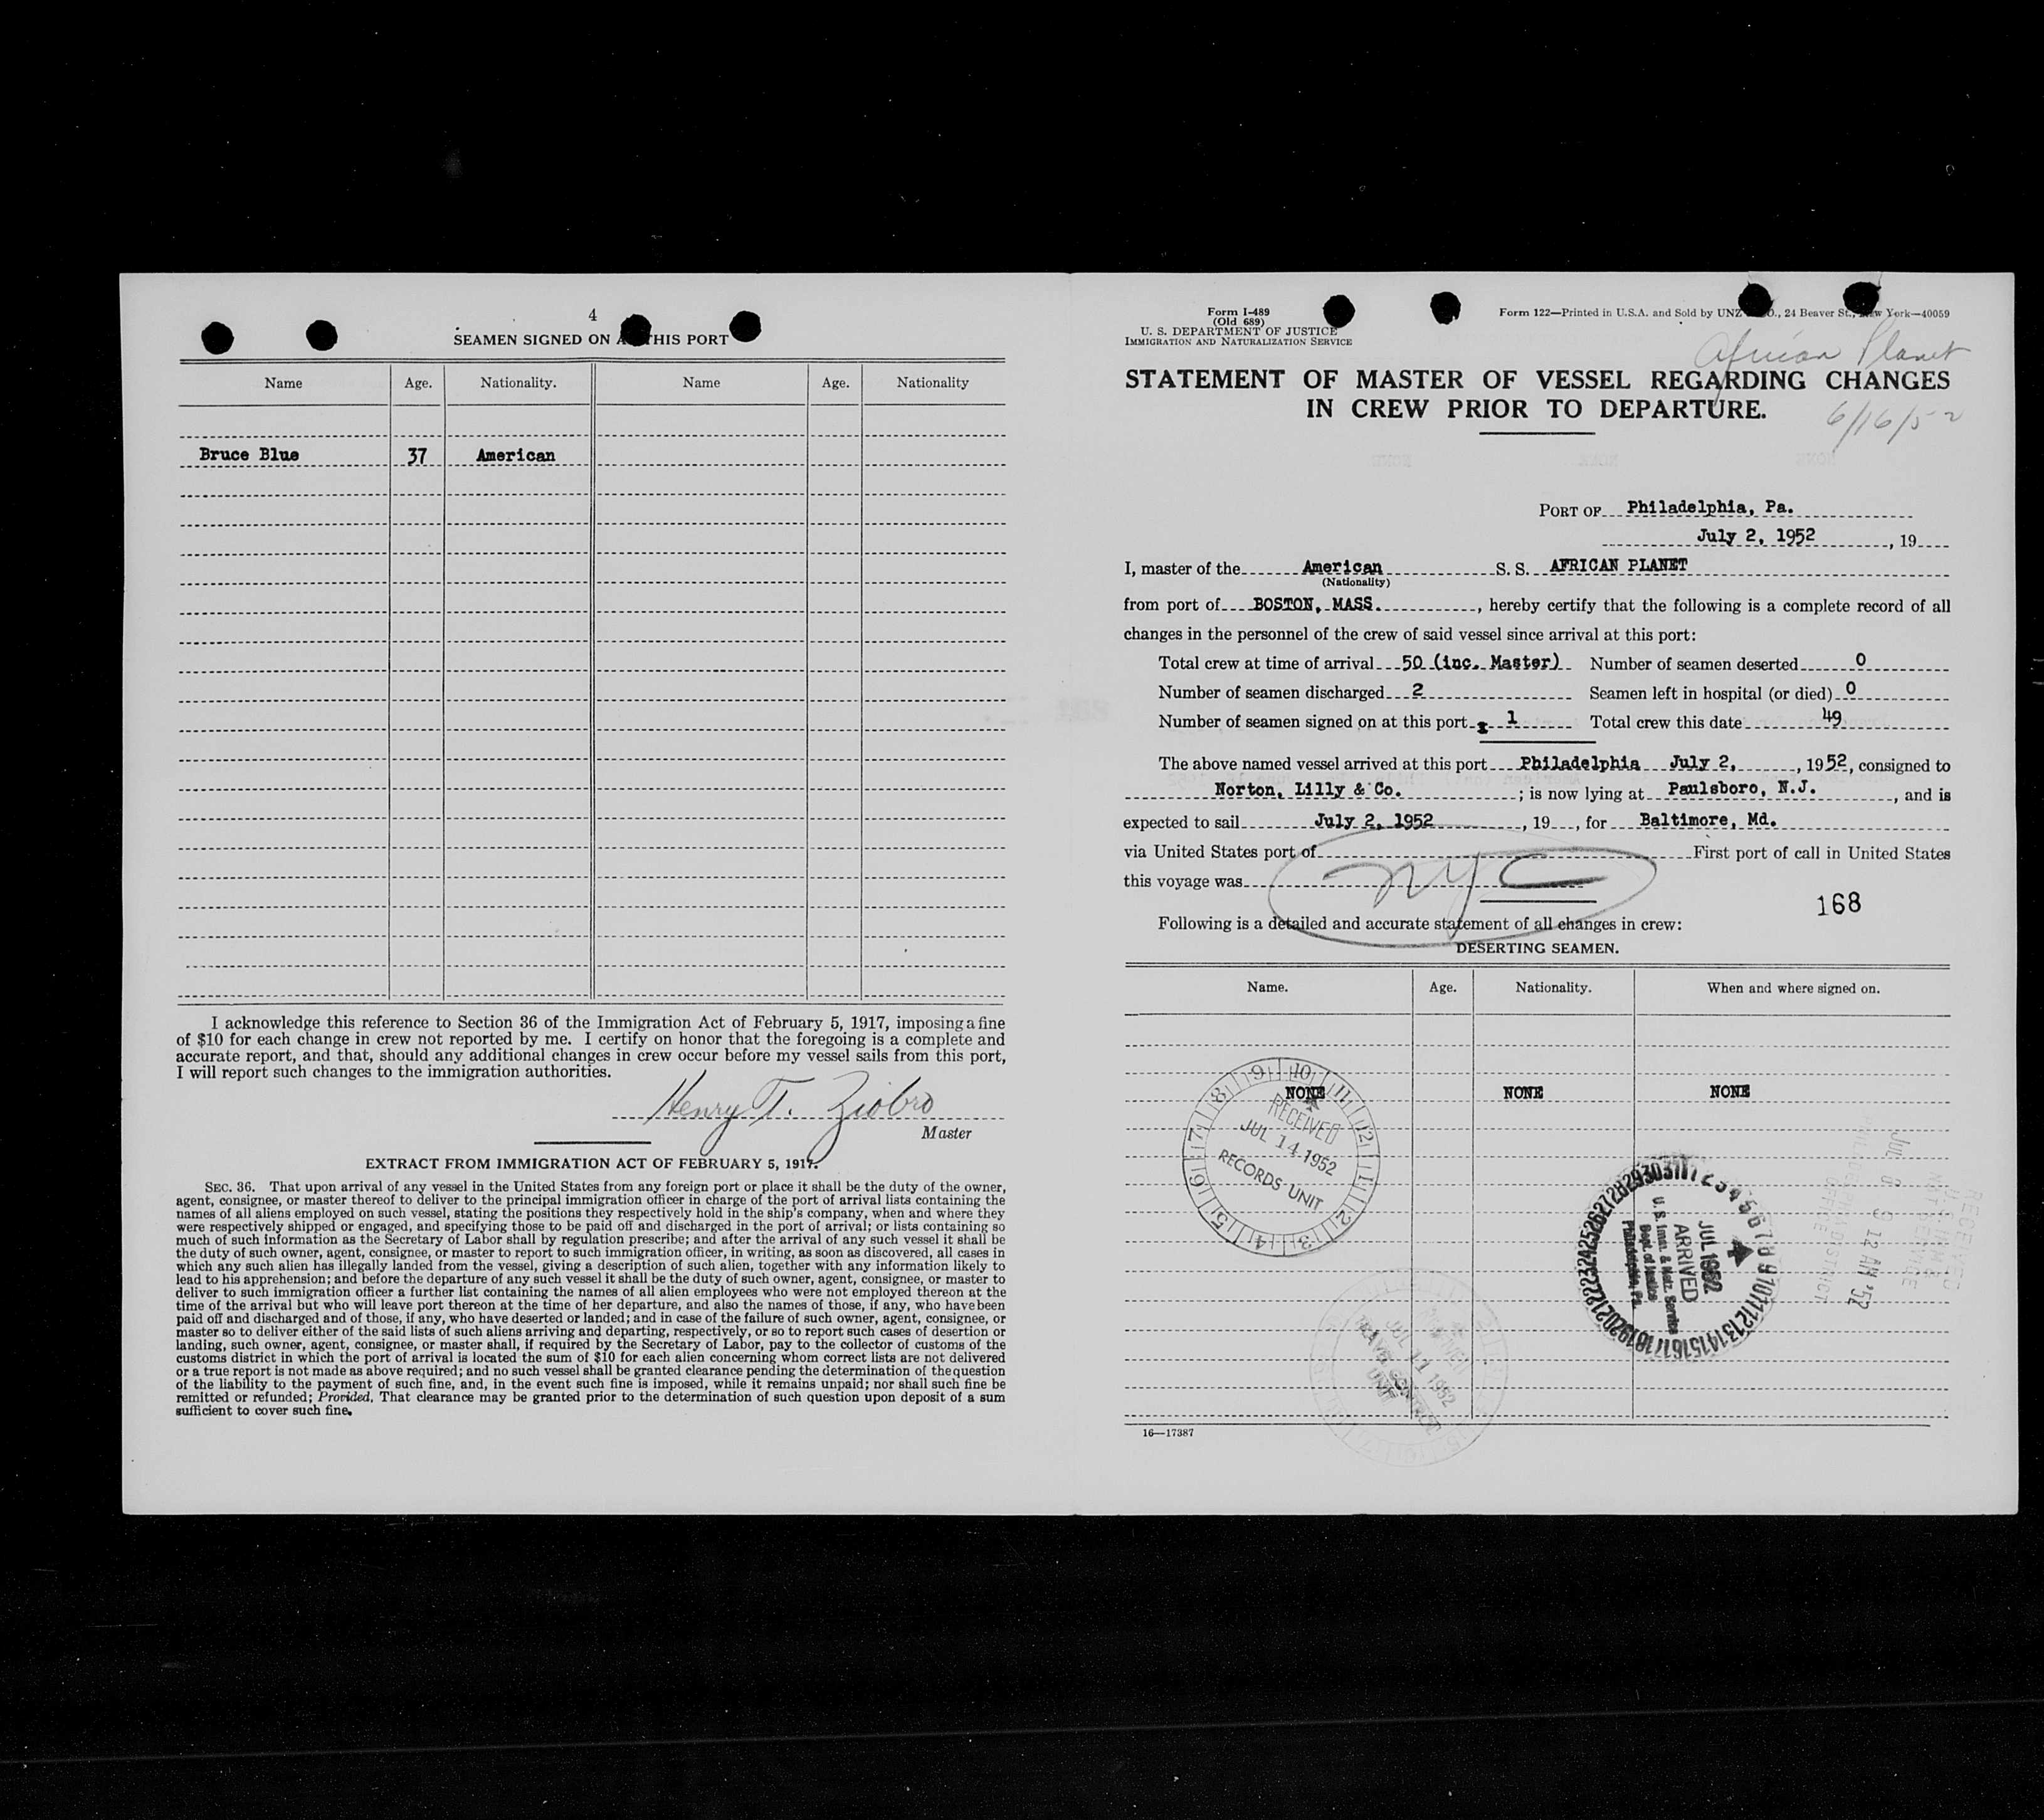 4
SEAMEN SIGNED ON THIS PORT
Name Age. Nationality. Name Age. Nationality
Bruce Blue 37 American
I acknowledge this reference to Section 36 of the Immigration Act of February 5, 1917, imposing a fine
of $10 for each change in crew not reported by me. I certify on honor that the foregoing is a complete and
accurate report, and that, should any additional changes in crew occur before my vessel sails from this port,
I will report such changes to the immigration authorities.
Henry T. Ziobro
Master
EXTRACT FROM IMMIGRATION ACT OF FEBRUARY 5, 1917.
SEC. 36. That upon arrival of any vessel in the United States from any foreign port or place it shall be the duty of the owner,
agent, consignee, or master thereof to deliver to the principal immigration officer in charge of the port of arrival lists containing the
names of all aliens employed on such vessel, stating the positions they respectively hold in the ship's company, when and where they
were respectively shipped or engaged, and specifying those to be paid off and discharged in the port of arrival; or lists containing so
much of such information as the Secretary of Labor shall by regulation prescribe; and after the arrival of any such vessel it shall be
the duty of such owner, agent, consignee, or master to report to such immigration officer, in writing, as soon as discovered, all cases in
which any such alien has illegally landed from the vessel, giving a description of such alien, together with any information likely to
lead to his apprehension; and before the departure of any such vessel it shall be the duty of such owner, agent, consignee, or master to
deliver to such immigration officer a further list containing the names of all alien employees who were not employed thereon at the
time of the arrival but who will leave port thereon at the time of her departure, and also the names of those, if any, who have been
paid off and discharged and of those, if any, who have deserted or landed; and in case of the failure of such owner, agent, consignee, or
master so to deliver either of the said lists of such aliens arriving and departing, respectively, or so to report such cases of desertion or
landing, such owner, agent, consignee, or master shall, if required by the Secretary of Labor, pay to the collector of customs of the
customs district in which the port of arrival is located the sum of $10 for each alien concerning whom correct lists are not delivered
or a true report is not made as above required; and no such vessel shall be granted clearance pending the determination of the question
of the liability to the payment of such fine, and, in the event such fine is imposed, while it remains unpaid; nor shall such fine be
remitted or refunded; Provided, That clearance may be granted prior to the determination of such question upon deposit of a sum
sufficient to cover such fine.
Form I-489
(Old 689)
U. S. DEPARTMENT OF JUSTICE
IMMIGRATION AND NATURALIZATION SERVICE
Form 122—Printed in U.S.A. and Sold by UNZ 24 Beaver St., York—40059
African Planet
STATEMENT OF MASTER OF VESSEL REGARDING CHANGES
IN CREW PRIOR TO DEPARTURE.
6/16/52
PORT OF Philadelphia, Pa.
July 2, 1952, 19
I, master of the American S. S. AFRICAN PLANET
(Nationality)
from port of BOSTON, MASS., hereby certify that the following is a complete record of all
changes in the personnel of the crew of said vessel since arrival at this port:
Total crew at time of arrival 50 (inc. Master) Number of seamen deserted 0
Number of seamen discharged 2 Seamen left in hospital (or died) 0
Number of seamen signed on at this port 1 Total crew this date 49
The above named vessel arrived at this port Philadelphia July 2, , 1952, consigned to
Norton, Lilly & Co. ; is now lying at Paulsboro, N.J. , and is
expected to sail July 2, 1952 , 19 , for Baltimore, Md.
via United States port of First port of call in United States
this voyage was NYC
168
Following is a detailed and accurate statement of all changes in crew:
DESERTING SEAMEN.
Name. Age. Nationality. When and where signed on.
NONE NONE NONE
9 10 11 12 1 2 3 4 5 6 7 8
RECEIVED
JUL 14 1952
RECORDS UNIT
JUL 1952
ARRIVED
U. S. Imm. & Natz. Service
Dept. of Justice
Philadelphia, Pa.
RECEIVED
JUL 8 9 12 AM '52
JUL 11 1952
UNIT
16—17387